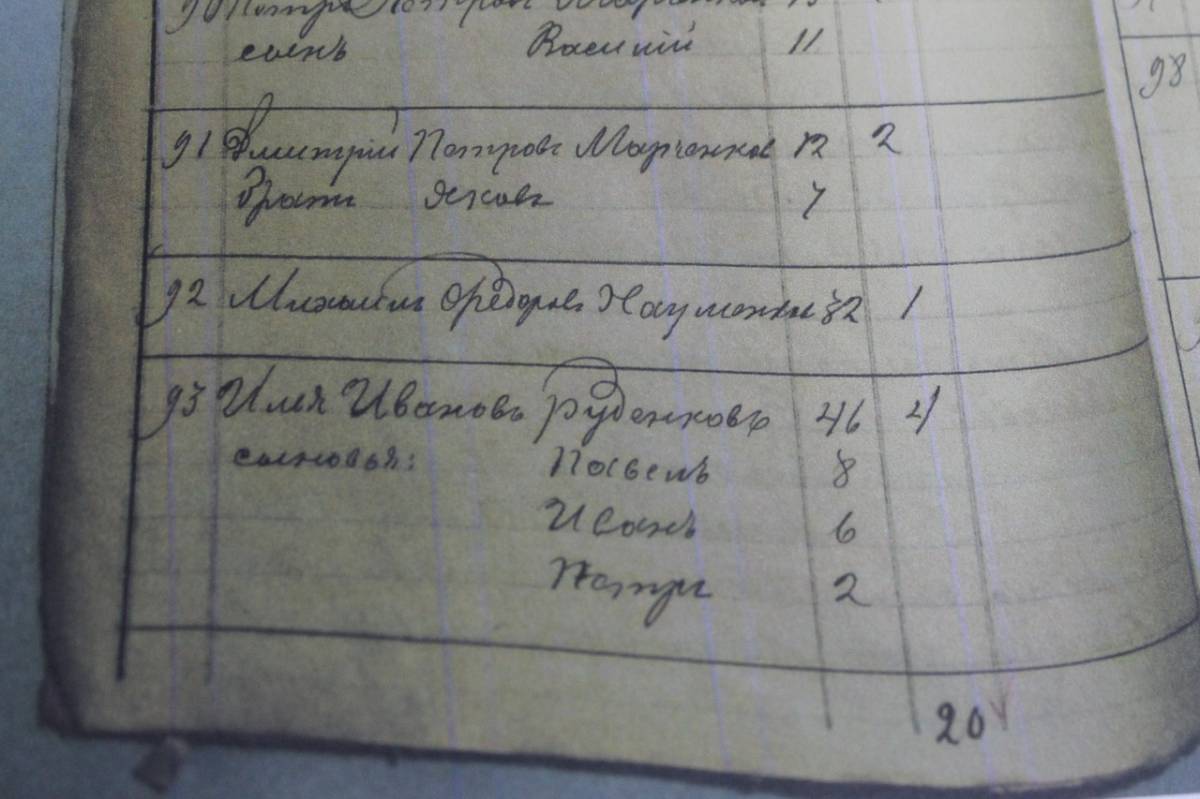 90 Петръ Петровъ Марченков 13
сынъ Василій 11
91 Дмитрій Петровъ Марченков 12 2
братъ Яковъ 7
92 Михаилъ Федоровъ Науменков 32 1
93 Илья Ивановъ Руденковъ 46 4
сыновья: Павелъ 8
Иванъ 6
Петръ 2
20
98